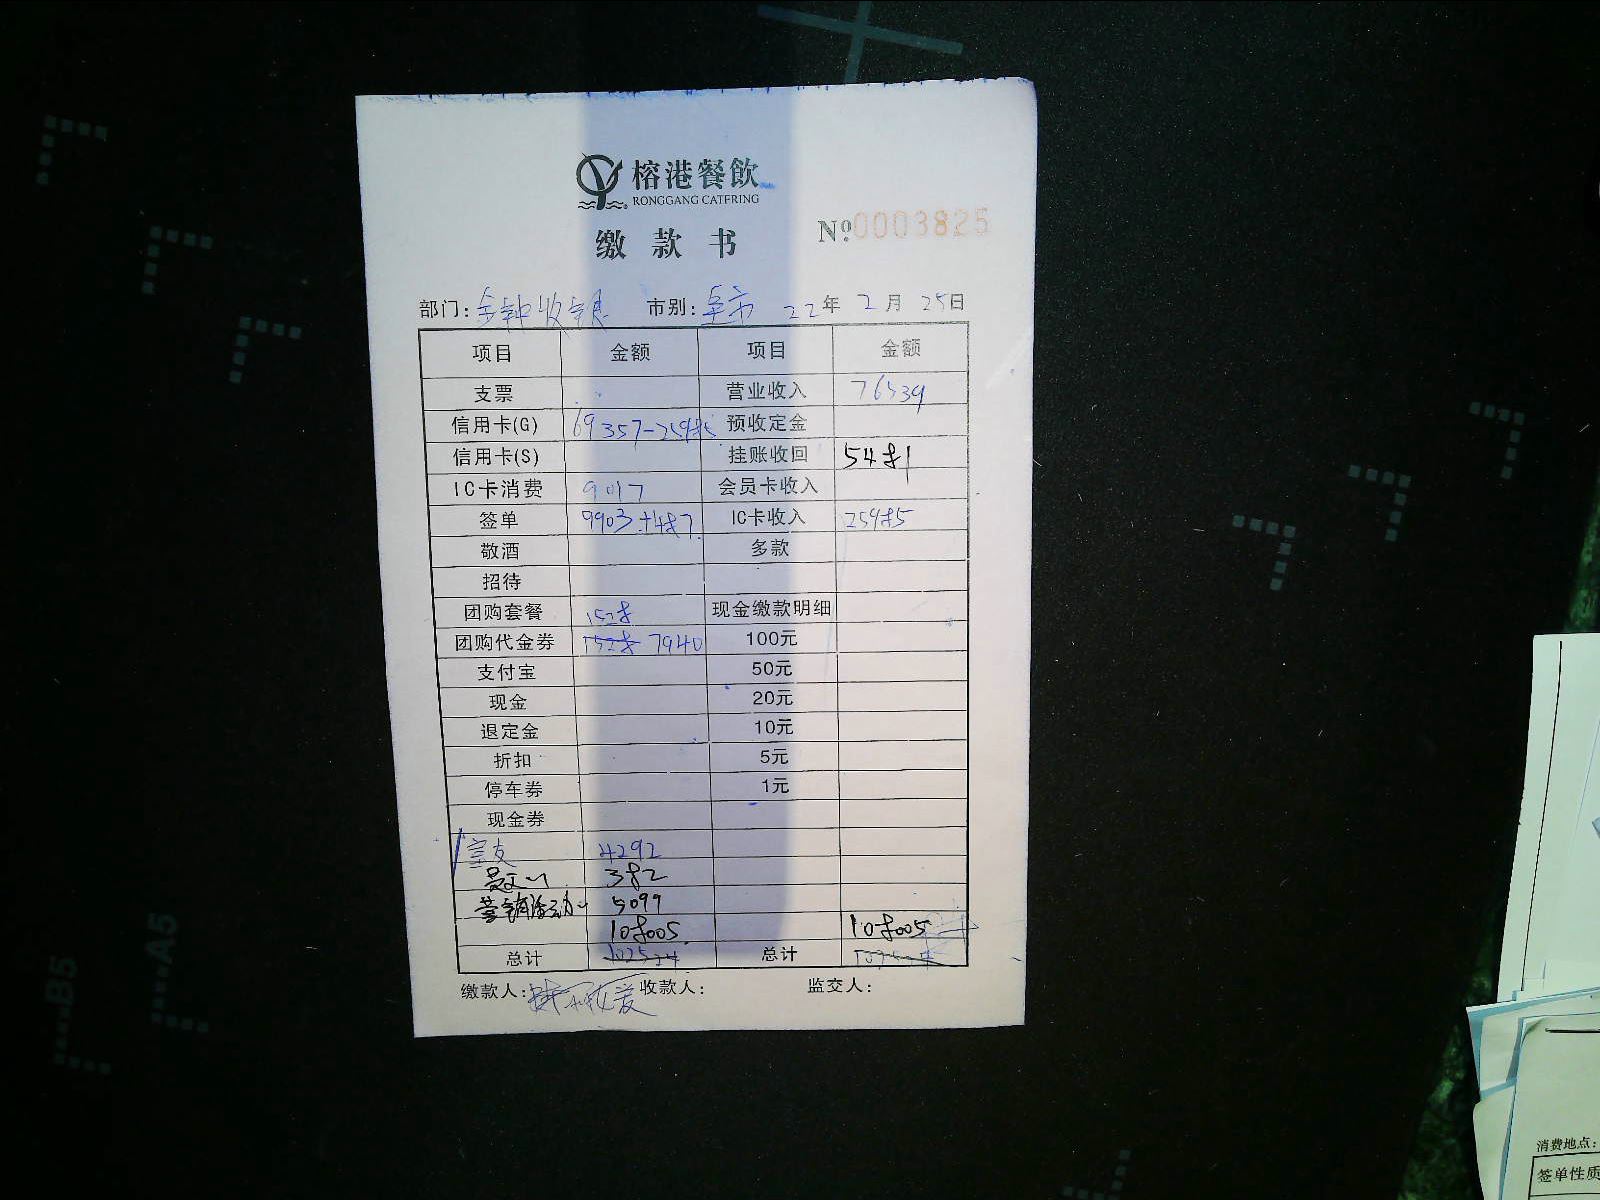 榕港餐飲
RONGGANG CATERING
缴款书
No 0003825
部门: 金钟收银 市别: 早市 22年 2月 25日
项目 金额 项目 金额
支票 营业收入 76539
信用卡(G) 69357-25985 预收定金
信用卡(S) 挂账收回 5481
IC卡消费 9017 会员卡收入
签单 9903+487 IC卡收入 25985
敬酒 多款
招待
团购套餐 1528 现金缴款明细
团购代金券 1528 7940 100元
支付宝 50元
现金 20元
退定金 10元
折扣 5元
停车券 1元
现金券
4292
382
营销活动 5099
108005 108005
总计 102524 总计 102524
缴款人: 收款人: 监交人:
B5
A5
消费地点:
签单性质